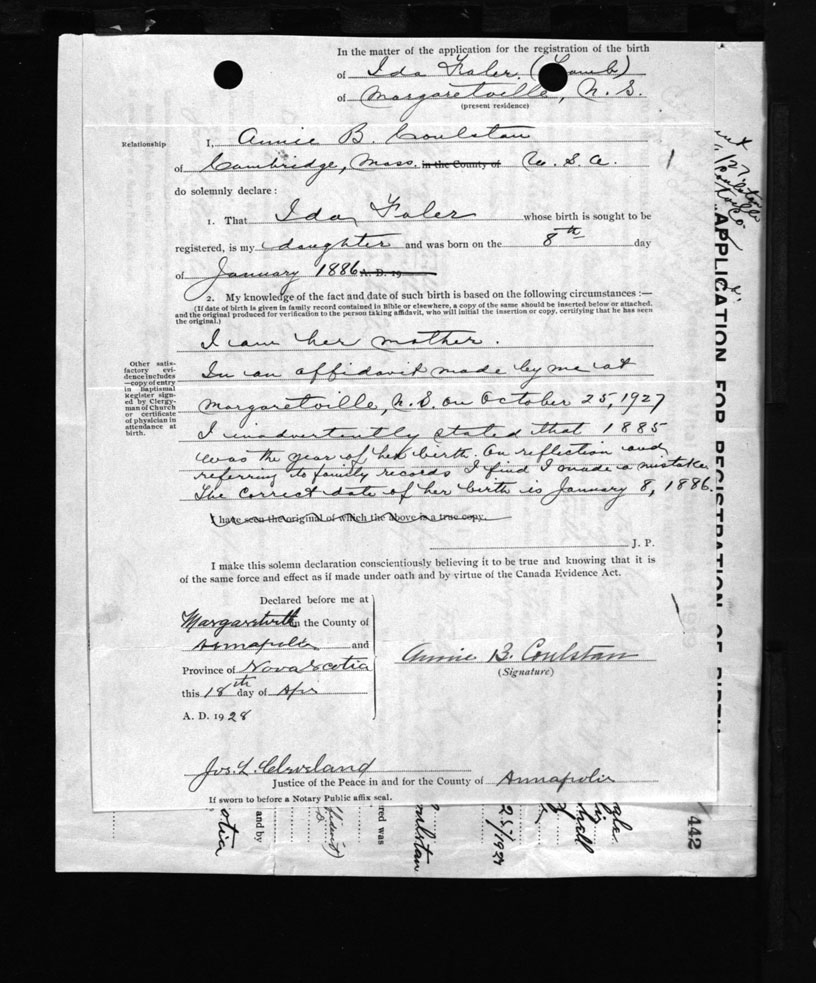 In the matter of the application for the registration of the birth
of Ida Faler. (Lamb)
of Margaretville, N. S.
(present residence)
Relationship
I, Annie B. Coulstan
of Cambridge, Mass. in the County of U. S. A.
do solemnly declare :
1. That Ida Faler whose birth is sought to be
registered, is my daughter and was born on the 8th day
of January 1886 A. D. 19
2. My knowledge of the fact and date of such birth is based on the following circumstances :—
(If date of birth is given in family record contained in Bible or elsewhere, a copy of the same should be inserted below or attached,
and the original produced for verification to the person taking affidavit, who will initial the insertion or copy, certifying that he has seen
the original.)
I am her mother.
Other satis-
factory evi-
dence includes
—copy of entry
in Baptismal
Register sign-
ed by Clergy-
man of Church
or certificate
of physician in
attendance at
birth.
In an affidavit made by me at
Margaretville, N. S. on October 25, 1927
I inadvertently stated that 1885
was the year of her birth. On reflection and
referring to family records I find I made a mistake.
The correct date of her birth is January 8, 1886.
I have seen the original of which the above is a true copy.
J. P.
I make this solemn declaration conscientiously believing it to be true and knowing that it is
of the same force and effect as if made under oath and by virtue of the Canada Evidence Act.
Declared before me at
Margaretville in the County of
Annapolis and
Province of Nova Scotia
this 18th day of Apr
A. D. 1928
Annie B. Coulstan
(Signature)
Jos. L. Cleveland
Justice of the Peace in and for the County of Annapolis
If sworn to before a Notary Public affix seal.
APPLICATION FOR REGISTRATION OF BIRTH
442
otia
and by
red was
oulstan
25/1927